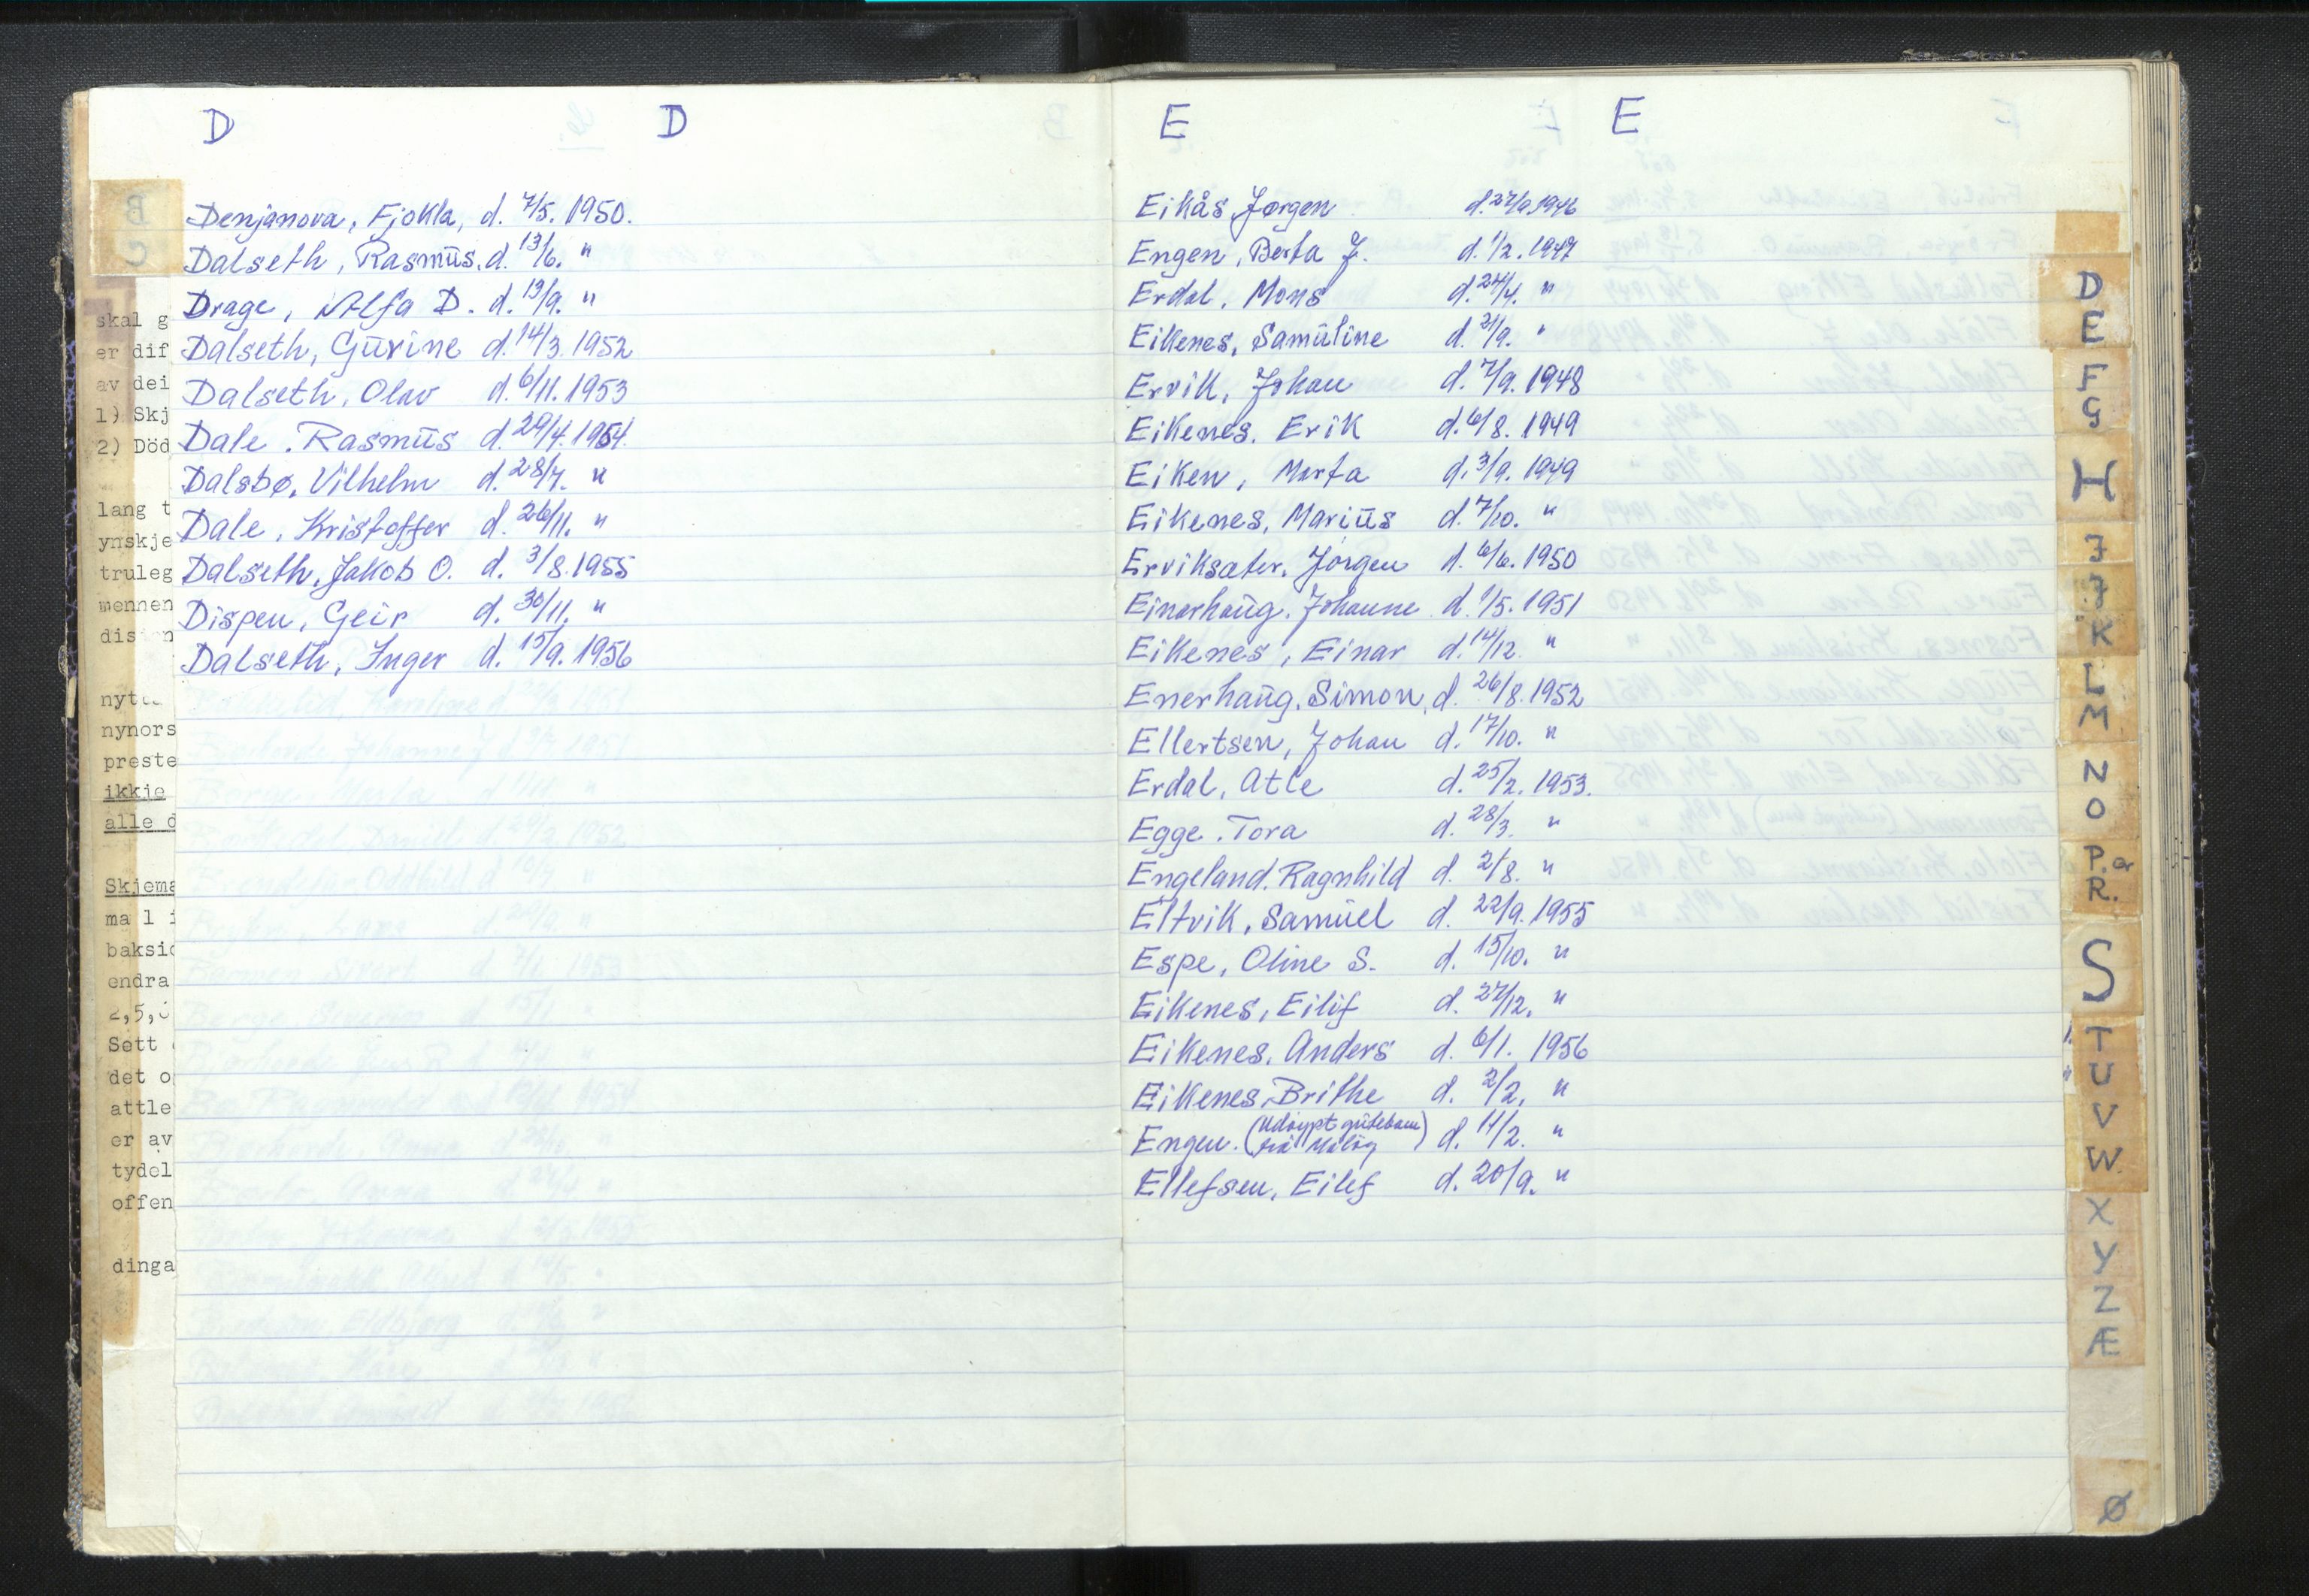 D D
Denjanova, Fjokla, d. 7/5. 1950.
Dalseth, Rasmus, d. 13/6. "
Drage, Alfa D. d. 13/9. "
Dalseth, Gurine d. 14/3. 1952
Dalseth, Olav d. 6/11. 1953
Dale. Rasmus d. 29/4. 1954.
Dalsbø, Vilhelm d. 28/7. "
Dale, Kristoffer d. 26/11. "
Dalseth, Jakob O. d. 3/8. 1955
Dispen, Geir d. 30/11. "
Dalseth, Inger d. 15/9. 1956
skal g
er dif
av dei
1) Skj
2) Död
lang t
ynskje
truleg
mennen
nynors
preste
ikkje
alle d
Skjema
baksid
endra
Sett
det o
attle
er av
tydel
offen
dinga
E E
Eikås, Jørgen d. 27/9. 1946
Engen, Berta J. d. 1/2. 1947
Erdal, Mons d. 24/4. "
Eikenes, Samuline d. 21/9. "
Ervik, Johan d. 7/9. 1948
Eikenes, Erik d. 6/8. 1949
Eiken, Marta d. 3/9. 1949
Eikenes, Marius d. 7/10. "
Erviksæter, Jörgen d. 6/6. 1950
Einarhaug. Johanne d. 1/5. 1951
Eikenes, Einar d. 14/12. "
Enerhaug, Simon, d. 26/8. 1952
Ellertsen, Johan d. 17/10. "
Erdal, Atle d. 25/2. 1953.
Egge. Tora d. 28/3. "
Engeland. Ragnhild d. 2/8. "
Eltvik, Samuel d. 22/9. 1955
Espe, Oline S. d. 15/10. "
Eikenes, Eilif d. 27/12. "
Eikenes, Anders d. 6/1. 1956
Eikenes, Brithe d. 2/2. "
Engen. (Udöypt gutebarn
frå Måløy) d. 11/2. "
Ellefsen, Eilef d. 20/9. "
D
E
F
G
H
I
J
K
L
M
N
O
P. Q
R.
S
T
U
V
W
X
Y
Z
Æ
Ø